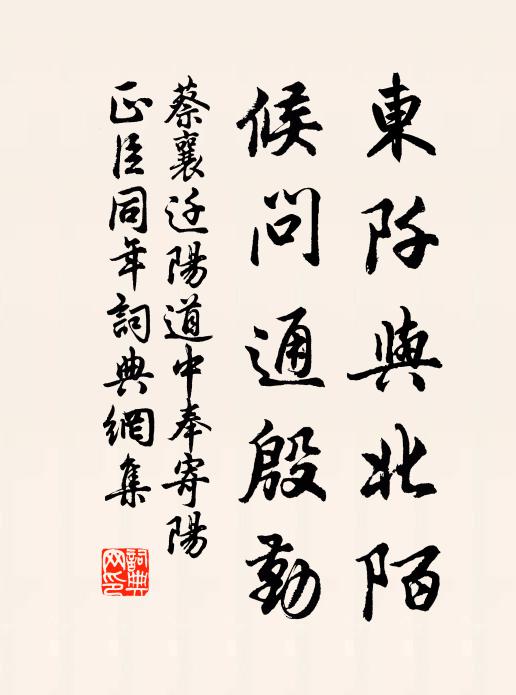 東阡與北陌
候問通殷勤
蔡襄迁陽道中奉寄陽
正臣同年詞典網集
詞典网印